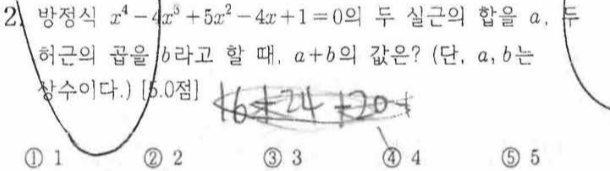 2. 방정식 x⁴-4x³+5x²-4x+1=0의 두 실근의 합을 a, 두
허근의 곱을 b라고 할 때, a+b의 값은? (단, a, b는
상수이다.) [5.0점]
① 1 ② 2 ③ 3 ④ 4 ⑤ 5